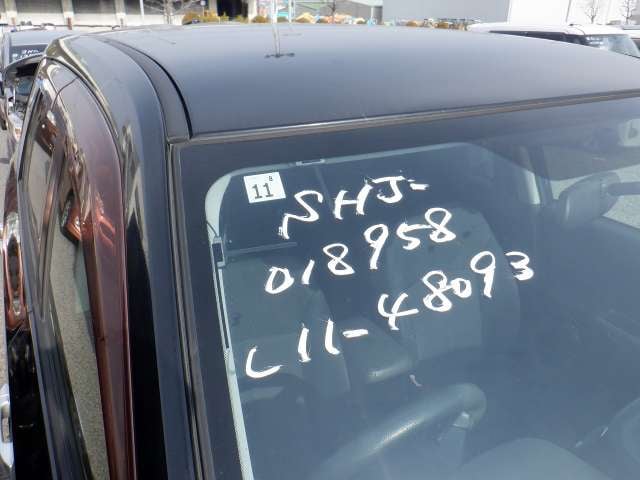 8
11
SHJ-
018958
L11-48093